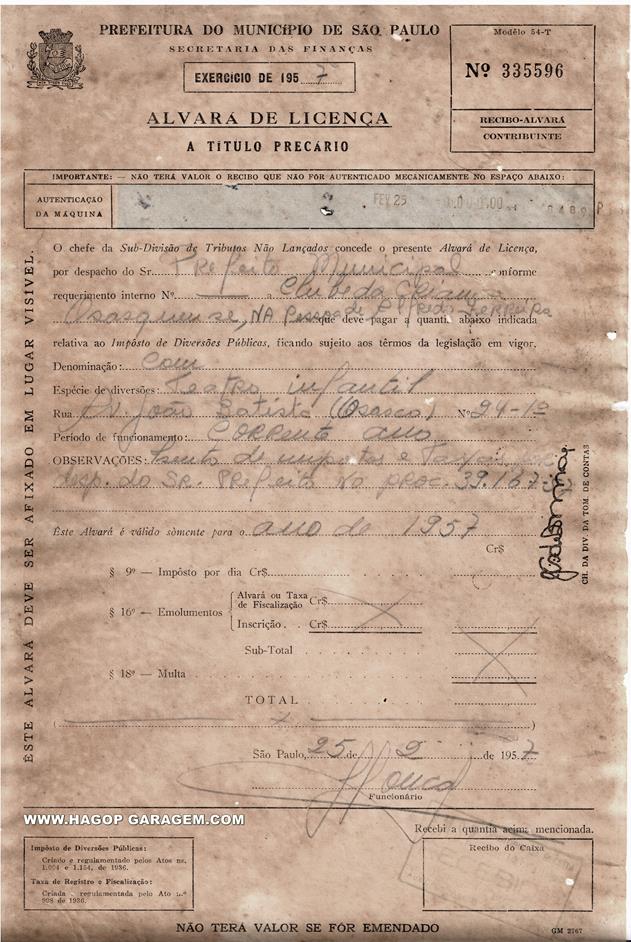 PREFEITURA DO MUNICÍPIO DE SÃO PAULO
SECRETARIA DAS FINANÇAS
EXERCÍCIO DE 1957
ALVARÁ DE LICENÇA
A TÍTULO PRECÁRIO
Modêlo 54-T
Nº 335596
RECIBO-ALVARÁ
CONTRIBUINTE
IMPORTANTE: — NÃO TERÁ VALOR O RECIBO QUE NÃO FÔR AUTENTICADO MECÂNICAMENTE NO ESPAÇO ABAIXO:
AUTENTICAÇÃO
DA MÁQUINA
FEV 25
O chefe da Sub-Divisão de Tributos Não Lançados concede o presente Alvará de Licença,
por despacho do Sr. Prefeito Municipal conforme
requerimento interno Nº a Clube da Criança
Osasquense, NA Pessoa de Alfredo Ferreira que deve pagar a quantia abaixo indicada
relativa ao Impôsto de Diversões Públicas, ficando sujeito aos têrmos da legislação em vigor.
Denominação: com
Espécie de diversões: Teatro infantil
Rua Av. João Batista (Osasco) Nº 24-1º
Período de funcionamento: corrente ano
OBSERVAÇÕES: Isento de impostos e Taxas
desp. do SR. PREfeito no proc. 39.167-57
Êste Alvará é válido sòmente para o ano de 1957
Cr$
§ 9º — Impôsto por dia Cr$
§ 16º — Emolumentos
Alvará ou Taxa
de Fiscalização Cr$
Inscrição. . Cr$
Sub-Total
§ 18º — Multa
TOTAL
São Paulo, 25 de 2 de 1957
Funcionário
Recebi a quantia acima mencionada.
Recibo do Caixa
Impôsto de Diversões Públicas:
Criado e regulamentado pelos Atos ns.
1.004 e 1.154, de 1936.
Taxa de Registro e Fiscalização:
Criada e regulamentada pelo Ato nº
998 de 1936.
NÃO TERÁ VALOR SE FÔR EMENDADO
GM 2767
ÊSTE ALVARÁ DEVE SER AFIXADO EM LUGAR VISÍVEL.
CH. DA DIV. DA TOM. DE CONTAS
WWW.HAGOP GARAGEM.COM